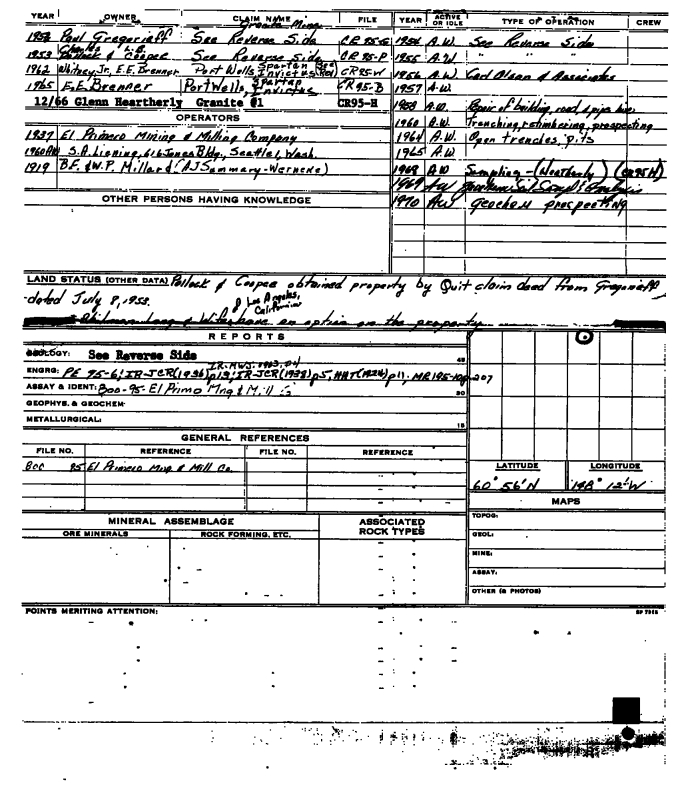 YEAR OWNER CLAIM NAME FILE YEAR ACTIVE OR IDLE TYPE OF OPERATION CREW
Granite Mine
1952 Paul Gregorieff See Reverse Side CR 95-G 1954 A.W. See Reverse Side
Charles L.B.
1953 Pollock & Coopee See Reverse Side CR 95-P 1955 A.W. " " "
1962 Whitney Jr, E.E. Brenner Port Wells, Spartan Invictus CR95-W 1956 A.W. Carl Olson & Associates
1965 E.E. Brenner Port Wells, Spartan Invictus CR 95-B 1957 A.W.
12/66 Glenn Heartherly Granite #1 CR95-H 1958 A.W. Repair of building, road & pipe line
OPERATORS 1960 A.W. trenching, retimbering, prospecting
1937 El Primero Mining & Milling Company 1964 A.W. Open trenches, pits
1960 AW S.A. Liening, 616 Jones Bldg, Seattle, Wash. 1965 A.W.
1919 B.F. & W.P. Millard (AJ Summary-Wernecke) 1968 A.W Sampling - (Weatherly) (CR95H)
1969 AW Geochemical Soil & Analysis
OTHER PERSONS HAVING KNOWLEDGE 1970 AW geochem prospecting
LAND STATUS (OTHER DATA) Pollock & Coopee obtained property by Quit claim deed from Gregorieff
dated July 8, 1953.
of Los Angeles, California
an option on the property
REPORTS
GEOLOGY: See Reverse Side 45
IR-MWJ: 1963, 64
ENGRG: PE 95-6; IR-JCR(1936)p13; IR-JCR(1938)p5, HHT(1924)p11; MR195-10p207
ASSAY & IDENT: 800-95-El Primo Mng & Mill'g 30
GEOPHYS. & GEOCHEM.
METALLURGICAL: 15
GENERAL REFERENCES
FILE NO. REFERENCE FILE NO. REFERENCE
800 95 El Primero Mng & Mill Co.
LATITUDE LONGITUDE
60° 56' N 148° 12' W
MAPS
MINERAL ASSEMBLAGE ASSOCIATED ROCK TYPES
ORE MINERALS ROCK FORMING, ETC.
TOPOG:
GEOL:
MINE:
ASSAY:
OTHER (& PHOTOS)
POINTS MERITING ATTENTION: